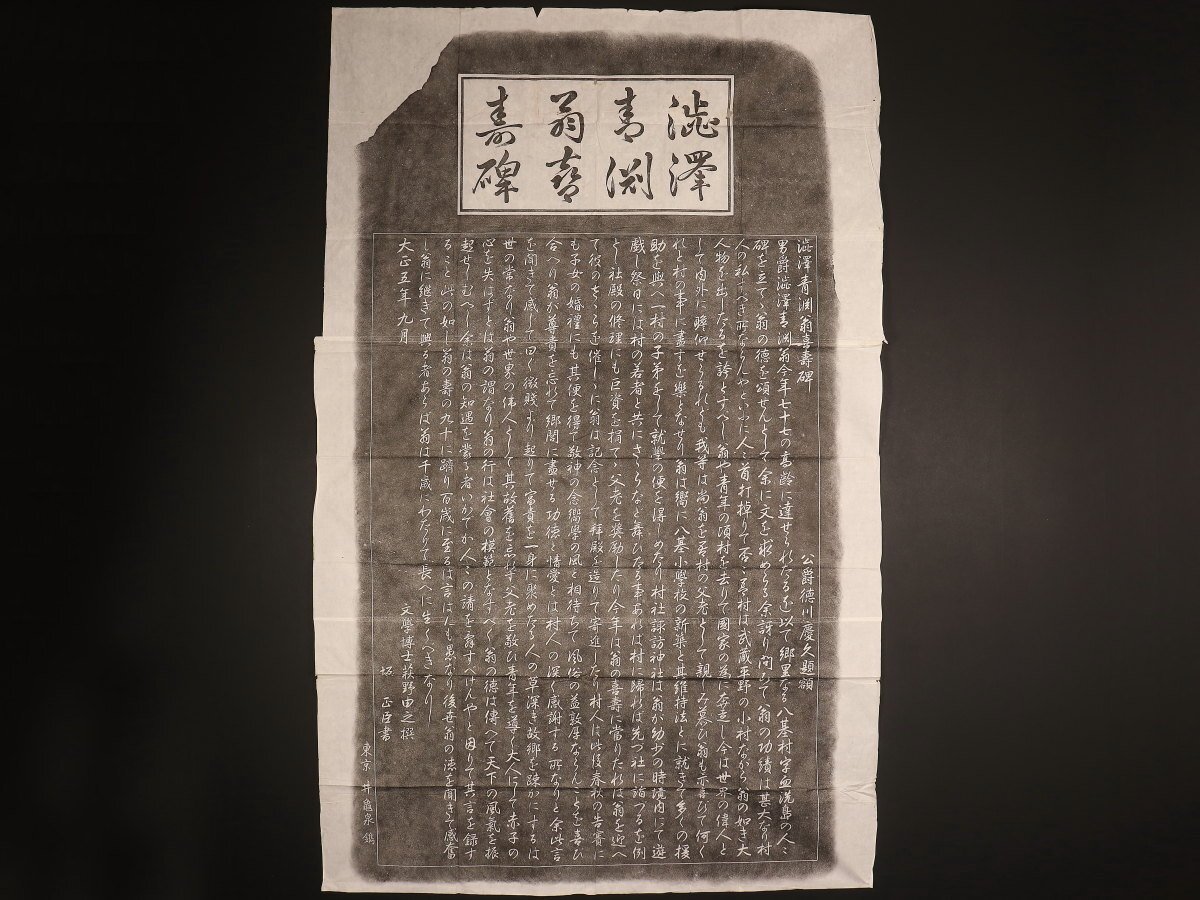 澁澤
青淵
翁喜
壽碑
澁澤青淵翁喜壽碑
公爵徳川慶久題額
男爵澁澤青淵翁今年七十七の高齢に達せられたるを以て郷里なる八基村字血洗島の人々
碑を立てゝ翁の徳を頌せんとして余に文を求めらる余訝り問ひて翁の功績は甚大なり村
人の私すへき所ならんやといふに人々首打掉りて否々吾村は武蔵平野の小村なから翁の如き大
人物を出したるを誇とすへし翁や青年の頃村を去りて國家の為に奔走し今は世界の偉人と
して内外に瞻仰せらるれとも我等は尚翁を吾村の父老として親しみ慕ひ翁も亦喜ひて何く
れと村の事に盡すを樂となせり翁は嚮に八基小學校の新築と其維持法とに就きて多くの援
助を與へ一村の子弟をして就學の便を得しめたり村社諏訪神社は翁か幼少の時境内にて遊
戯し祭日には村の若者と共にさゝらなと舞ひたる事あれは村に歸れは先つ社に詣つるを例
とし社殿の修理にも巨資を捐てゝ父老を奨勵したり今年は翁の喜壽に當りたれは翁を迎へ
て彼のさゝらを催しゝに翁は記念として拜殿を造りて寄進したり村人は此後春秋の告賽に
も子女の婚禮にも其便を得て敬神の念嚮學の風と相待ちて風俗の益敦厚ならんことを喜ひ
合へり翁か尊貴を忘れて郷閭に盡せる功徳と情愛とは村人の深く感謝する所なりと余此言
を聞きて感して曰く微賤より起りて富貴を一身に聚めたる人の草深き故郷を疎かにするは
世の常なり翁や世界の偉人として其故舊を忘れす父老を敬ひ青年を導く大人にして赤子の
心を失はすとは翁の謂なり翁の行は社會の模範となすへく翁の徳は傳へて天下の風氣を振
起せしむへし余は翁の知遇を蒙る者いかてか人々の請を辭すへけんやと因りて其言を録す
ること此の如し翁の壽の九十に躋り百歳に至るは言はんも愚なり後世翁の徳を聞きて感奮
し翁に継きて興る者あらは翁は千歳にわたりて長へに生くへきなり
大正五年九月
文學博士萩野由之撰
阪正臣書
東京 井龜泉鐫